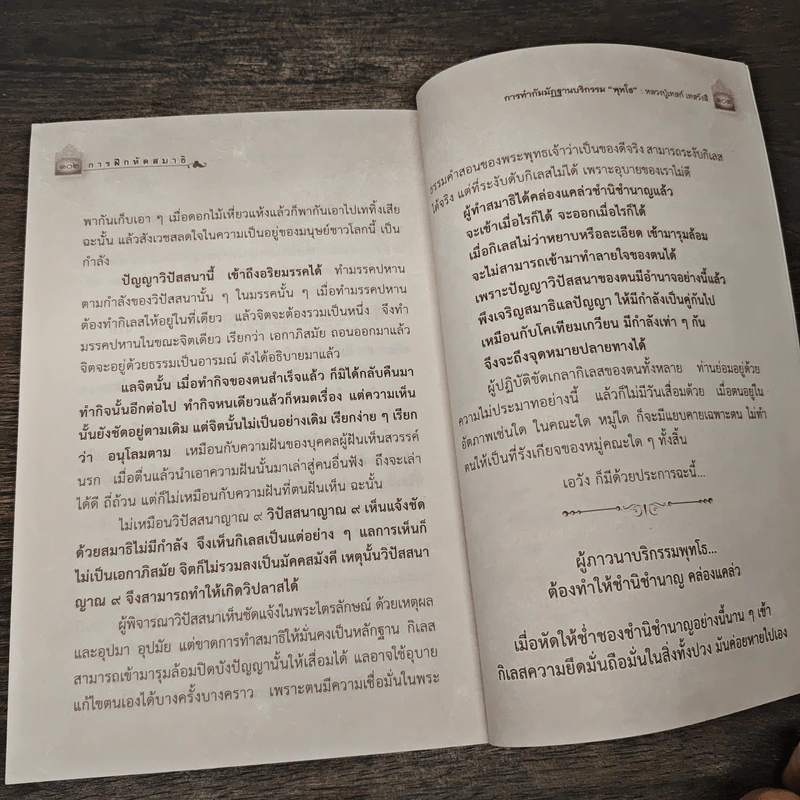 ๑๐๒ การฝึกหัดสมาธิ
พากันเก็บเอา ๆ เมื่อดอกไม้เหี่ยวแห้งแล้วก็พากันเอาไปเททิ้งเสีย
ฉะนั้น แล้วสังเวชสลดใจในความเป็นอยู่ของมนุษย์ชาวโลกนี้ เป็น
กำลัง
ปัญญาวิปัสสนานี้ เข้าถึงอริยมรรคได้ ทำมรรคปหาน
ตามกำลังของวิปัสสนานั้น ๆ ในมรรคนั้น ๆ เมื่อทำมรรคปหาน
ต้องทำกิเลสให้อยู่ในที่เดียว แล้วจิตจะต้องรวมเป็นหนึ่ง จึงทำ
มรรคปหานในขณะจิตเดียว เรียกว่า เอกาภิสมัย ถอนออกมาแล้ว
จิตจะอยู่ด้วยธรรมเป็นอารมณ์ ดังได้อธิบายมาแล้ว
แลจิตนั้น เมื่อทำกิจของตนสำเร็จแล้ว ก็มิได้กลับคืนมา
ทำกิจนั้นอีกต่อไป ทำกิจหนเดียวแล้วก็หมดเรื่อง แต่ความเห็น
นั้นยังชัดอยู่ตามเดิม แต่จิตนั้นไม่เป็นอย่างเดิม เรียกง่าย ๆ เรียก
ว่า อนุโลมตาม เหมือนกับความฝันของบุคคลผู้ฝันเห็นสวรรค์
นรก เมื่อตื่นแล้วนำเอาความฝันนั้นมาเล่าสู่คนอื่นฟัง ถึงจะเล่า
ได้ดี ถี่ถ้วน แต่ก็ไม่เหมือนกับความฝันที่ตนฝันเห็น ฉะนั้น
ไม่เหมือนวิปัสสนาญาณ ๙ วิปัสสนาญาณ ๙ เห็นแจ้งชัด
ด้วยสมาธิไม่มีกำลัง จึงเห็นกิเลสเป็นแต่อย่าง ๆ แลการเห็นก็
ไม่เป็นเอกาภิสมัย จิตก็ไม่รวมลงเป็นมัคคสมังคี เหตุนั้นวิปัสสนา
ญาณ ๙ จึงสามารถทำให้เกิดวิปลาสได้
ผู้พิจารณาวิปัสสนาเห็นชัดแจ้งในพระไตรลักษณ์ ด้วยเหตุผล
และอุปมา อุปมัย แต่ขาดการทำสมาธิให้มั่นคงเป็นหลักฐาน กิเลส
สามารถเข้ามารุมล้อมปิดบังปัญญานั้นให้เสื่อมได้ แลอาจใช้อุบาย
แก้ไขตนเองได้บางครั้งบางคราว เพราะตนมีความเชื่อมั่นในพระ
การทำกัมมัฏฐานบริกรรม "พุทโธ" : หลวงปู่เทสก์ เทสรังสี ๑๐๓
ธรรมคำสอนของพระพุทธเจ้าว่าเป็นของดีจริง สามารถระงับกิเลส
ได้จริง แต่ที่ระงับดับกิเลสไม่ได้ เพราะอุบายของเราไม่ดี
ผู้ทำสมาธิได้คล่องแคล่วชำนิชำนาญแล้ว
จะเข้าเมื่อไรก็ได้ จะออกเมื่อไรก็ได้
เมื่อกิเลสไม่ว่าหยาบหรือละเอียด เข้ามารุมล้อม
จะไม่สามารถเข้ามาทำลายใจของตนได้
เพราะปัญญาวิปัสสนาของตนมีอำนาจอย่างนี้แล้ว
พึงเจริญสมาธิแลปัญญา ให้มีกำลังเป็นคู่กันไป
เหมือนกับโคเทียมเกวียน มีกำลังเท่า ๆ กัน
จึงจะถึงจุดหมายปลายทางได้
ผู้ปฏิบัติขัดเกลากิเลสของตนทั้งหลาย ท่านย่อมอยู่ด้วย
ความไม่ประมาทอย่างนี้ แล้วก็ไม่มีวันเสื่อมด้วย เมื่อตนอยู่ใน
อัตภาพเช่นใด ในคณะใด หมู่ใด ก็จะมีแบบคายเฉพาะตน ไม่ทำ
ตนให้เป็นที่รังเกียจของหมู่คณะใด ๆ ทั้งสิ้น
เอวัง ก็มีด้วยประการฉะนี้...
ผู้ภาวนาบริกรรมพุทโธ...
ต้องทำให้ชำนิชำนาญ คล่องแคล่ว
เมื่อหัดให้ช่ำชองชำนิชำนาญอย่างนี้นาน ๆ เข้า
กิเลสความยึดมั่นถือมั่นในสิ่งทั้งปวง มันค่อยหายไปเอง